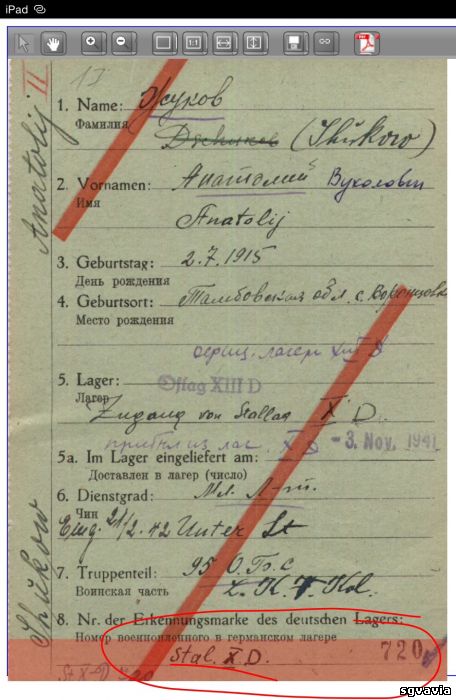 iPad
1:1
II
1. Name: Жуков
Фамилия Dschukow (Shŭkow)
2. Vornamen: Анатолий Вуколович
Имя
Anatolij
3. Geburtstag: 2.7.1915
День рождения
4. Geburtsort: Тамбовская обл. с. Воронцовка
Место рождения
офиц. лагерь XIII D
5. Lager: Oflag XIII D
Лагер
Zugang von Stallag X D.
прибыл из лаг. X D - 3. Nov. 1941
5a. Im Lager eingeliefert am:
Доставлен в лагер (число)
6. Dienstgrad: Мл. Л-т.
Чин
21/2.42 Unter Lt
7. Truppenteil: 95
Воинская часть
8. Nr. der Erkennungsmarke des deutschen Lagers:
Номер военнопленного в германском лагере
Stal. X D. 720
St X D 720
Anatolij
Shŭkow
sgvavia